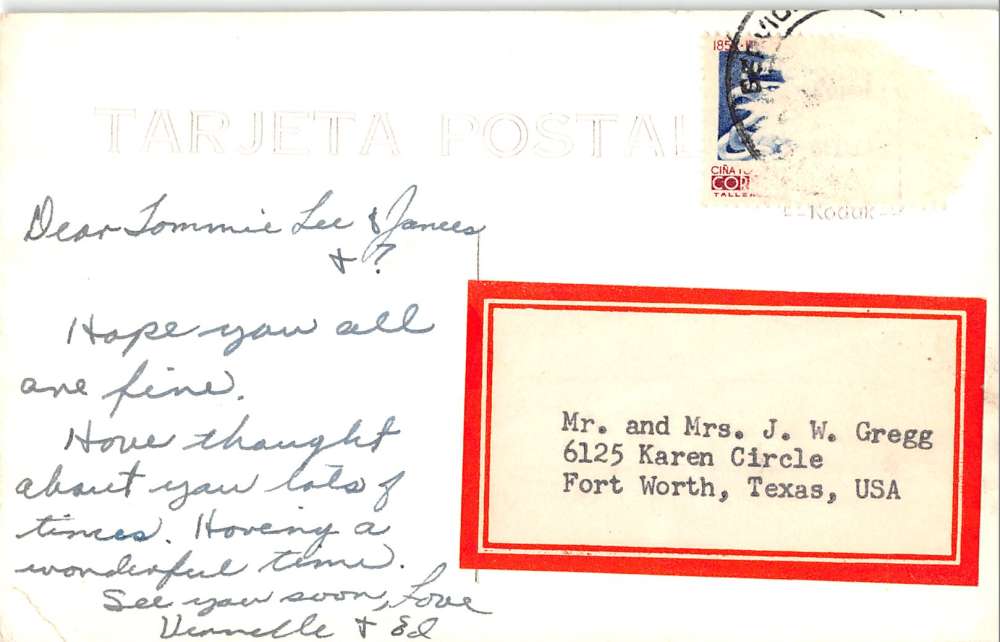 TARJETA POSTAL
SERVICI
185
CIÑA
COR
TALLER
Kodak
Dear Tommie Lee & Jances
+ ?
Hope you all
are fine.
Have thought
about you lots of
times. Having a
wonderful time.
See you soon, Love
Vernelle + Ed
Mr. and Mrs. J. W. Gregg
6125 Karen Circle
Fort Worth, Texas, USA